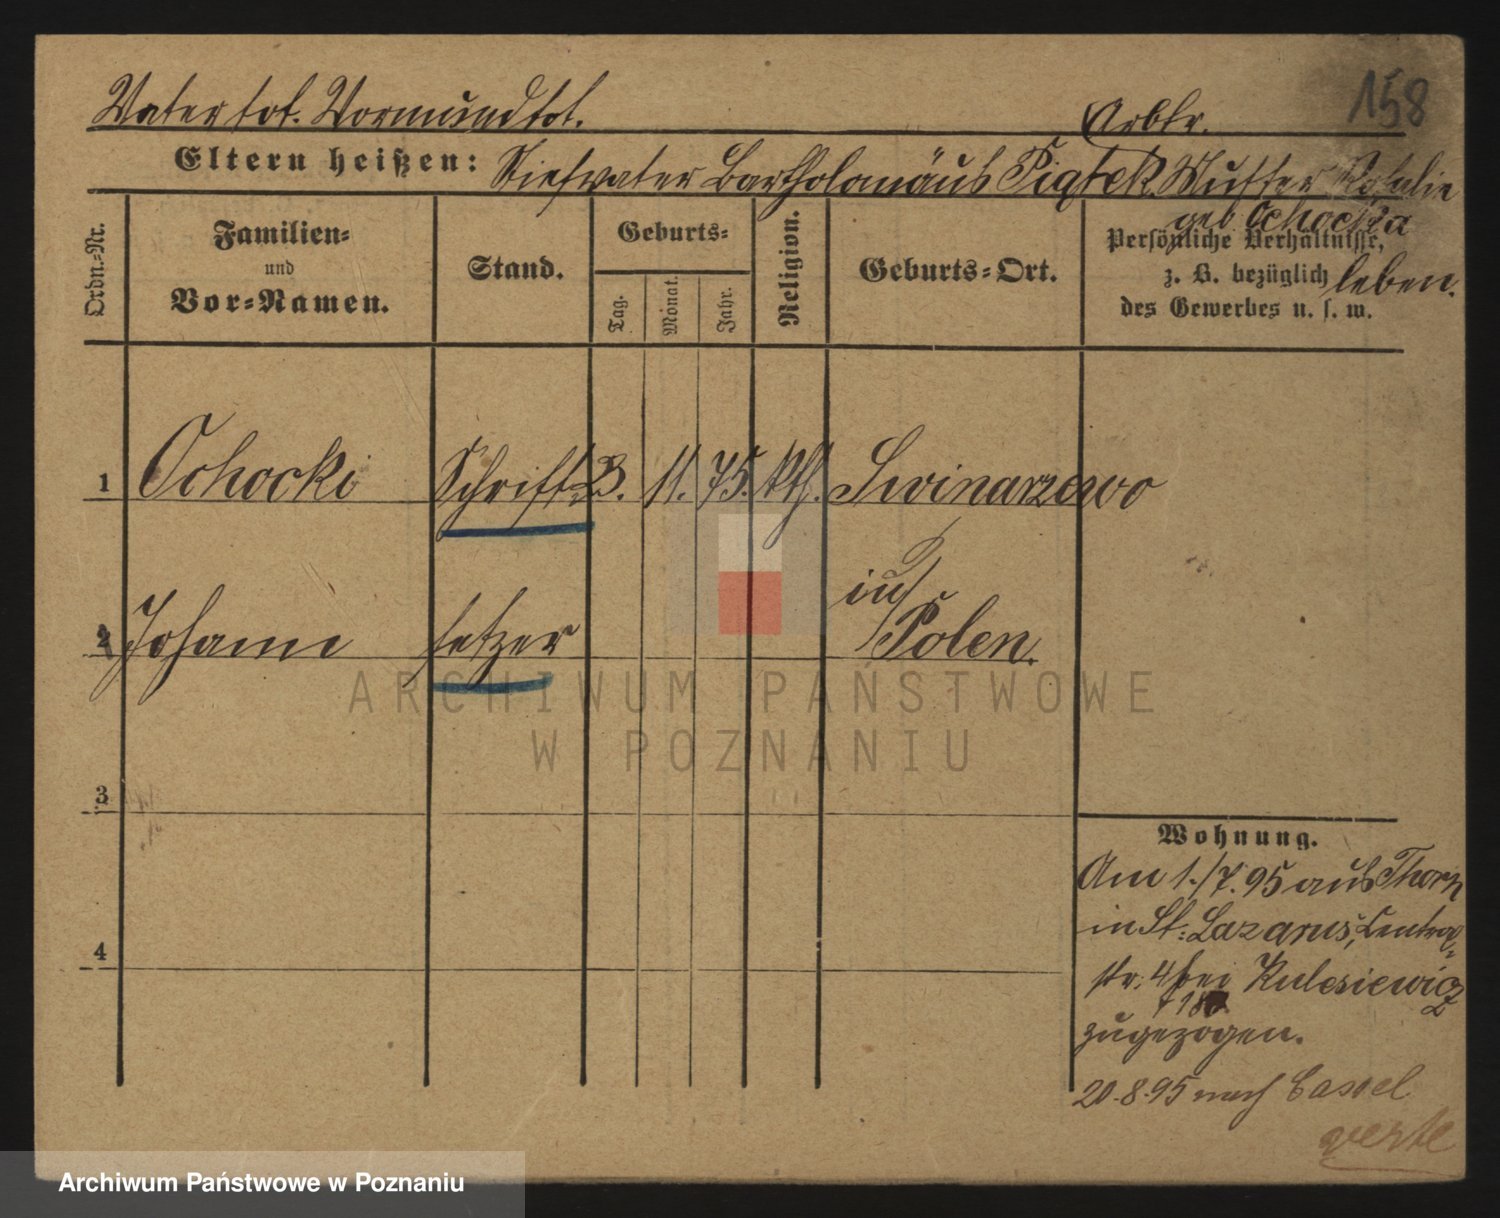 158
Vater tot. Vormund tot.
Arbtr.
Eltern heißen: Stiefvater Bartholomäus Piątek Mutter Rosalie
geb Ochocka
leben.
Ordn.-Nr.
Familien-
und
Vor-Namen.
Stand.
Geburts-
Tag.
Monat.
Jahr.
Religion.
Geburts-Ort.
Persönliche Verhältnisse,
z. B. bezüglich
des Gewerbes u. s. w.
1 Ochocki Schrift- 3. 11. 75. kth. Swinarzewo
in
2 Johann setzer Polen.
3
4
Wohnung.
Am 1./7. 95 aus Thorn
in St. Lazarus, Central-
str. 4 bei Kulesiewicz
zugezogen.
20.8.95 nach Cassel
verte
ARCHIWUM PAŃSTWOWE
W POZNANIU
Archiwum Państwowe w Poznaniu